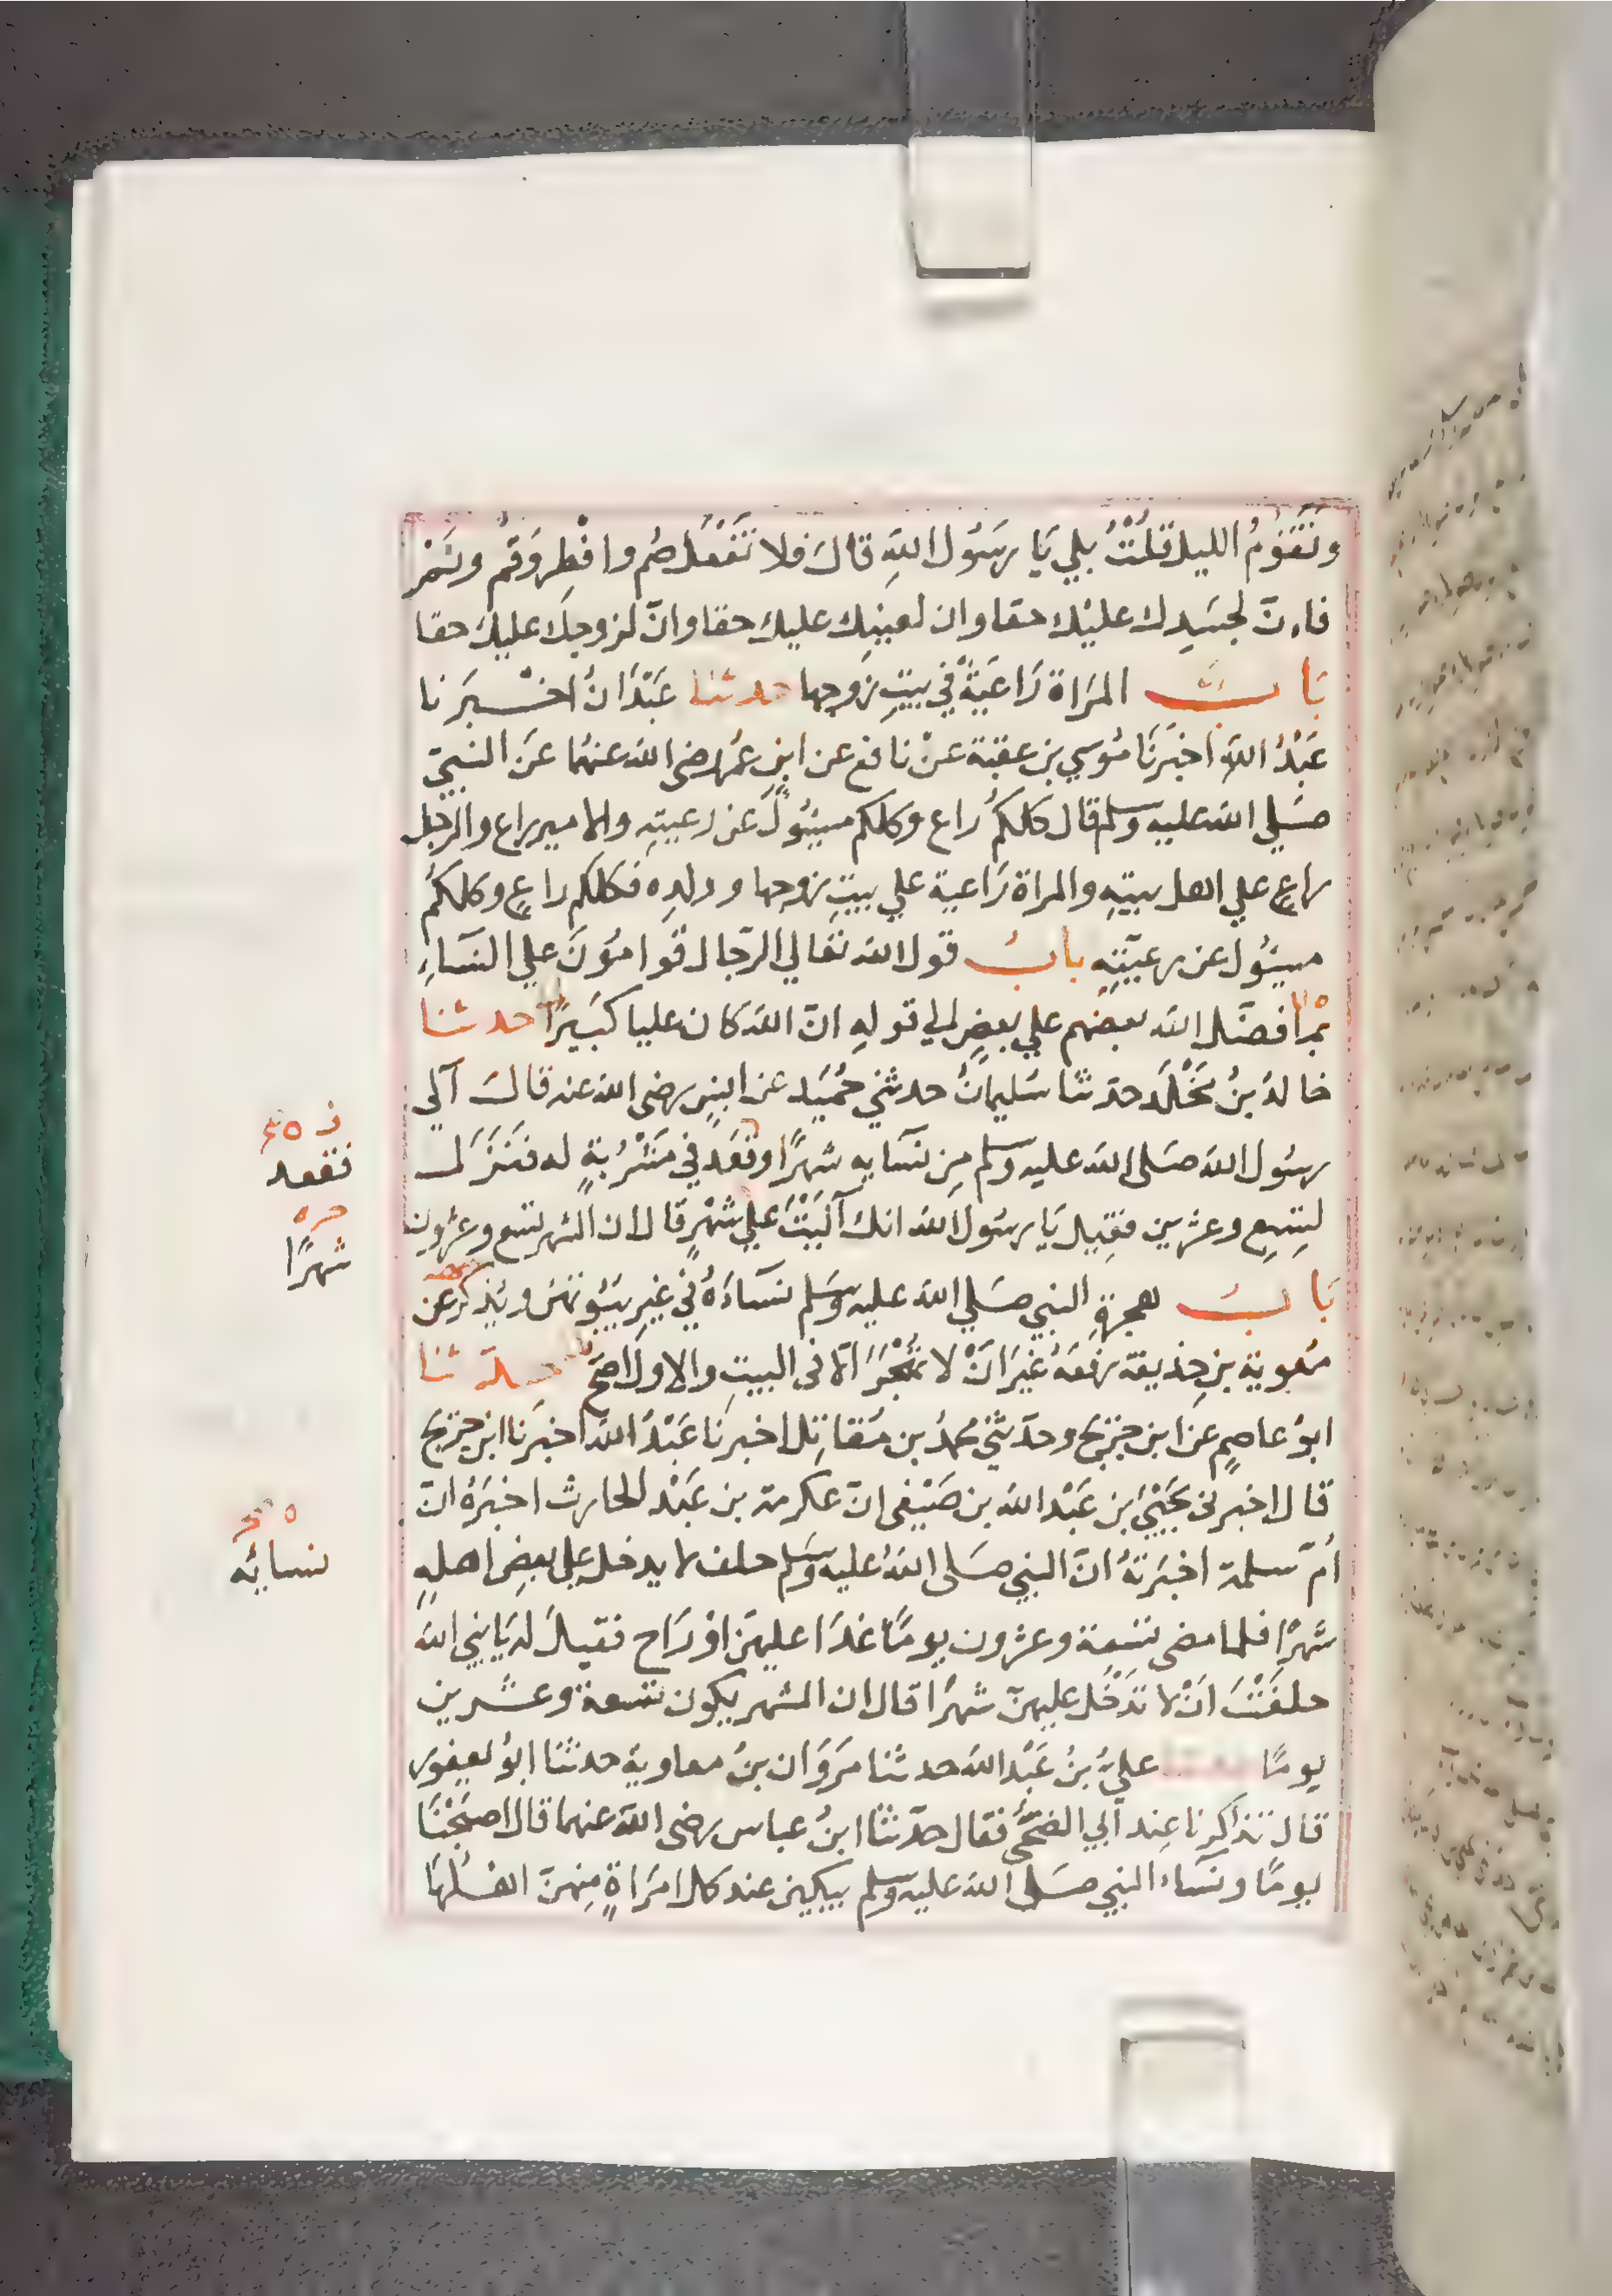 وَتَقُوْمُ الليل قلْتُ بلي يَا رسَوُل اللهِ قال فلا تفْعَل صُم وافْطِر وَقمُ ونَمْ
فاِنّ لجسَدِك عليْك حقا وان لعينِك عليك حقا وانّ لزوجِك عليك حقا
بَابُ المَراة رَاعَيةٌ في بيتِ زَوجها حدثنا عَبْدَانُ اخْبرَنا
عَبْدُ اللهِ اخبَرنَا مُوسي بن عقبة عنْ نافع عن ابنِ عمُر رضى الله عنهُما عَن النبيّ
صَلي الله عليه وسلم قال كلكمُ راع وكلكم مسئول عن رعيتِهِ والامير راع والرجل
راعٍ علي اهل بيتِهِ والمراة رَاعية علي بيتِ زوجها وولدِه فكلكم راعٍ وكلكمُ
مسئول عن رعيّتِهِ بابُ قول الله تعالي الرّجال قوامُوَن علي النسَاءِ
بما فضّل الله بعضهم علي بعضٍ الي قولهِ انّ الله كان عليا كبَيرًا حدثنا
خالدُ بنُ مَخْلَد حدّثنَا سُليمانُ حدثني حُمَيْد عن انسٍ رضى الله عنه قالَ آلي
رسُول الله صَلى الله عليه وسلم مِن نسَايه شهرًا وقَعَد في مَشْرُبةٍ له فنَزَل
لتِسِع وعشرين فقِيل يَا رسُول الله انك آليَتَ علي شهْرٍ قال ان الشهر تسع وعشرون
بَابُ هجرةِ النبي صَلي الله عليه وسَلم نسَاءَهُ في غيرِ بيُوتهنّ ويُذكرُ عن
مُعوية بن حِذيقة رفعَهُ غيَر انْ لا تُهْجَرَ الا فى البيتِ والاول اصَحّ حدّثنا
ابوُ عاصِمٍ عن ابن جريج وحدّثنى محمدُ بن مُقاتِل اخبرنَا عَبْدُ الله اخبرَنا ابن جريج
قال اخبرنى يَحَيْيَ بن عَبْد الله بن صَيْفى انّ عكرمة بن عَبْد الحارث اخبَرهُ انّ
أُمّ سلمة اخبَرتهُ انّ النبي صَلى اللهُ عليه وسَلم حلف لا يدخل علي بعضِ اهلهِ
شهرًا فلما مضى تسْعة وعشرون يومًا غدَا عليهنّ اوْ رَاح فقيلَ له يَا نبي الله
حلفَتْ انْ لا تدَخُل عليهنّ شهرًا قال ان الشهر يكون تسعة وعشرين
يومًا حدثنا عليُّ بنُ عَبْد الله حدثنا مرَوَان بنُ معاوية حدثنا ابوُ يعفور
قال تذاكرنا عِند ابي الضحَي فقال حدّثنَا ابنُ عباس رضى الله عنهما قال اصبَحْنَا
يومًا ونسَاء النبي صَلى الله عليه وسلم يبكين عند كل امرَاةٍ مِنهنّ اهلُهَا
فقعد
شهرًا
نسائِه